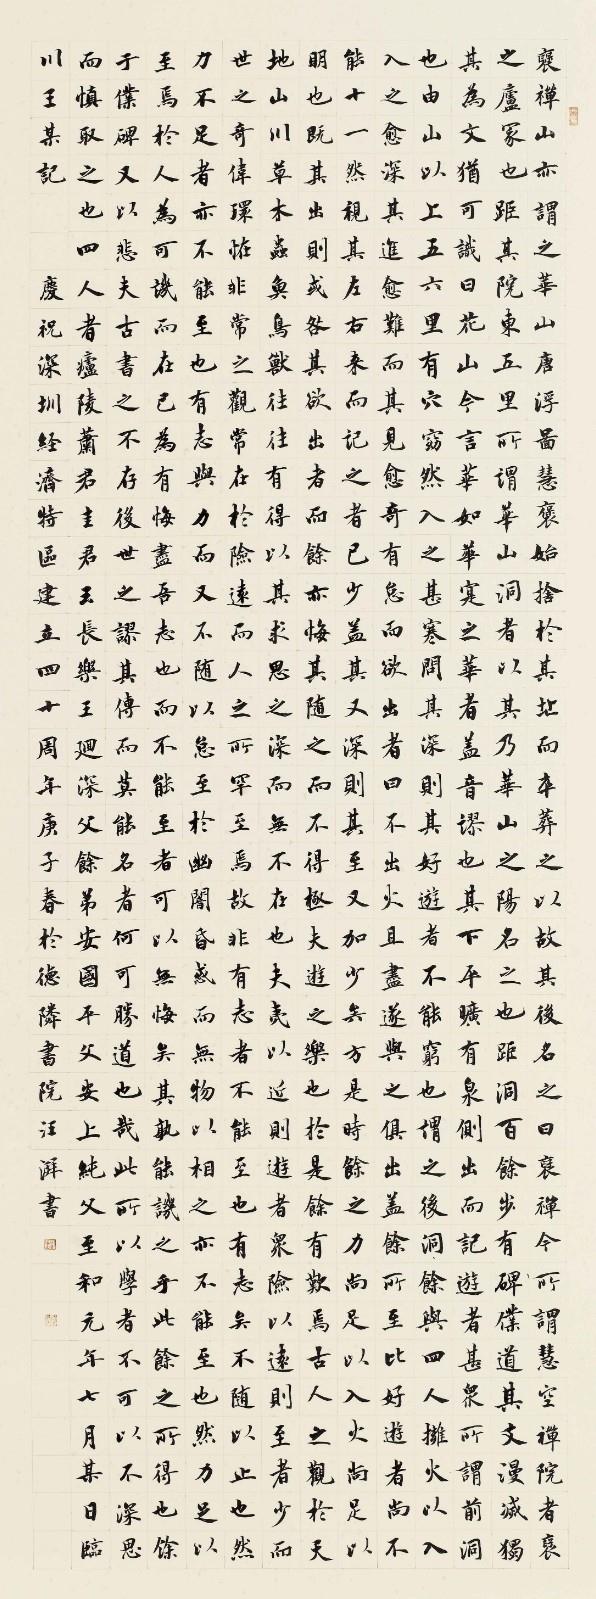 褒禪山亦謂之華山唐浮圖慧褒始捨於其址而卒葬之以故其後名之曰褒禪今所謂慧空禪院者褒
之廬冢也距其院東五里所謂華山洞者以其乃華山之陽名之也距洞百餘步有碑僕道其文漫滅獨
其為文猶可識曰花山今言華如華寔之華者蓋音謬也其下平曠有泉側出而記遊者甚眾所謂前洞
也由山以上五六里有穴窈然入之甚寒問其深則其好遊者不能窮也謂之後洞餘與四人擁火以入
入之愈深其進愈難而其見愈奇有怠而欲出者曰不出火且盡遂與之俱出蓋餘所至比好遊者尚不
能十一然視其左右来而記之者已少蓋其又深則其至又加少矣方是時餘之力尚足以入火尚足以
明也既其出則或咎其欲出者而餘亦悔其随之而不得極夫遊之樂也於是餘有歎焉古人之觀於天
地山川草木蟲魚鳥獸往往有得以其求思之深而無不在也夫夷以近則遊者眾險以遠則至者少而
世之奇偉瑰怪非常之觀常在於險遠而人之所罕至焉故非有志者不能至也有志矣不随以止也然
力不足者亦不能至也有志與力而又不随以怠至於幽闇昏惑而無物以相之亦不能至也然力足以
至焉於人為可譏而在己為有悔盡吾志也而不能至者可以無悔矣其孰能譏之乎此餘之所得也餘
于僕碑又以悲夫古書之不存後世之謬其傳而莫能名者何可勝道也哉此所以學者不可以不深思
而慎取之也四人者廬陵蕭君圭君玉長樂王廻深父餘弟安國平父安上純父至和元年七月某日臨
川王某記 慶祝深圳経濟特區建立四十周年庚子春於德隣書院汪湃書